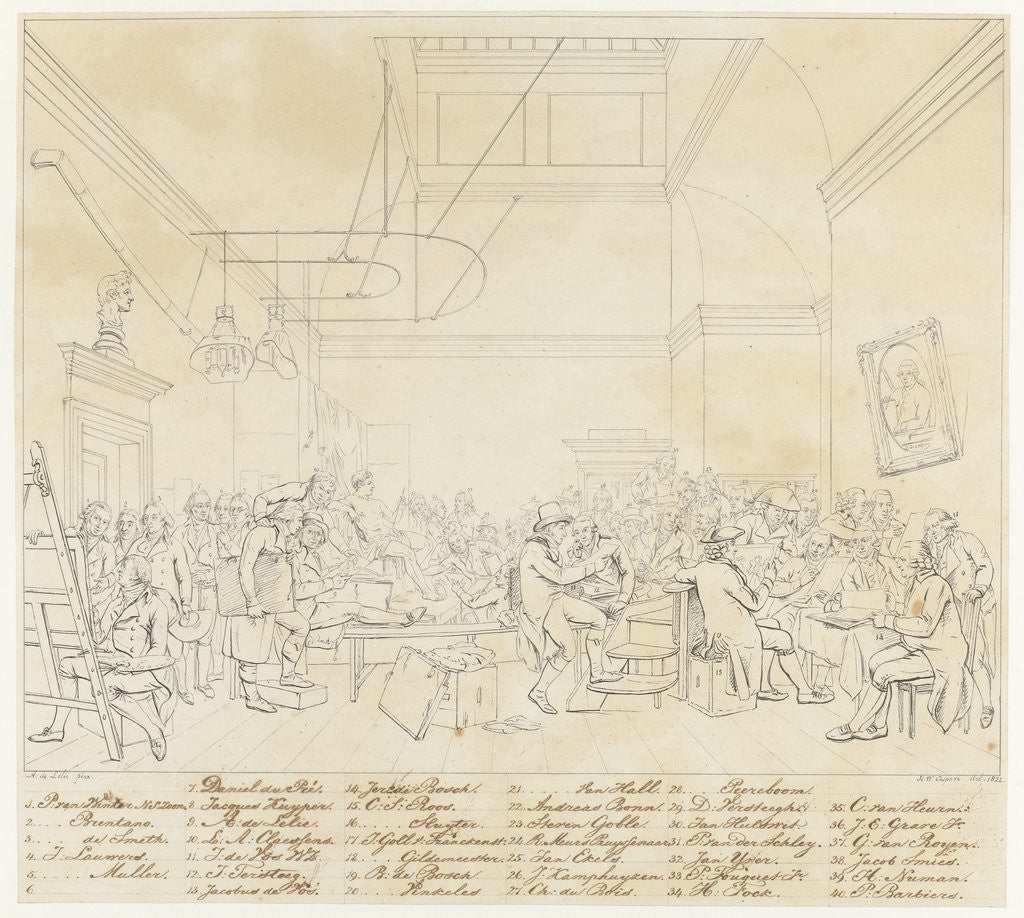 A. de Lelie pinx.
H. W. Caspari del. 1822.
1. P. van Winter N.S. Zoon.
2. .... Brentano.
3. .... de Smeth.
4. J. Lauwers.
5. .... Muller.
6.
7. Daniel du Pré.
8. Jacques Kuyper.
9. A. de Lelie.
10. L. A. Claessens.
11. J. de Vos Wz.
12. J. Tersteeg.
13. Jacobus de Vos.
14. Jer. de Bosch.
15. C. S. Roos.
16. .... Sluyter.
17. J. Goll v. Franckenst:
18. .... Gildemeester.
19. B. de Bosch.
20. .... Vinkeles
21. .... van Hall.
22. Andreas Bonn.
23. Steven Goble.
24. R. Meurs Pruyssenaer
25. Jan Ekels.
26. J. Kamphuyzen.
27. Ch: du Bois.
28. .... Peereboom.
29. D. Versteegh:
30. Jan Hulswit.
31. P. van der Schley.
32. Jan Yver.
33. P. Fouquet Jr.
34. H: Fock.
35. C. van Heurn.
36. J. E. Grave Jr.
37. G: van Royen.
38. Jacob Smies.
39. H: Numan.
40. P: Barbiers.